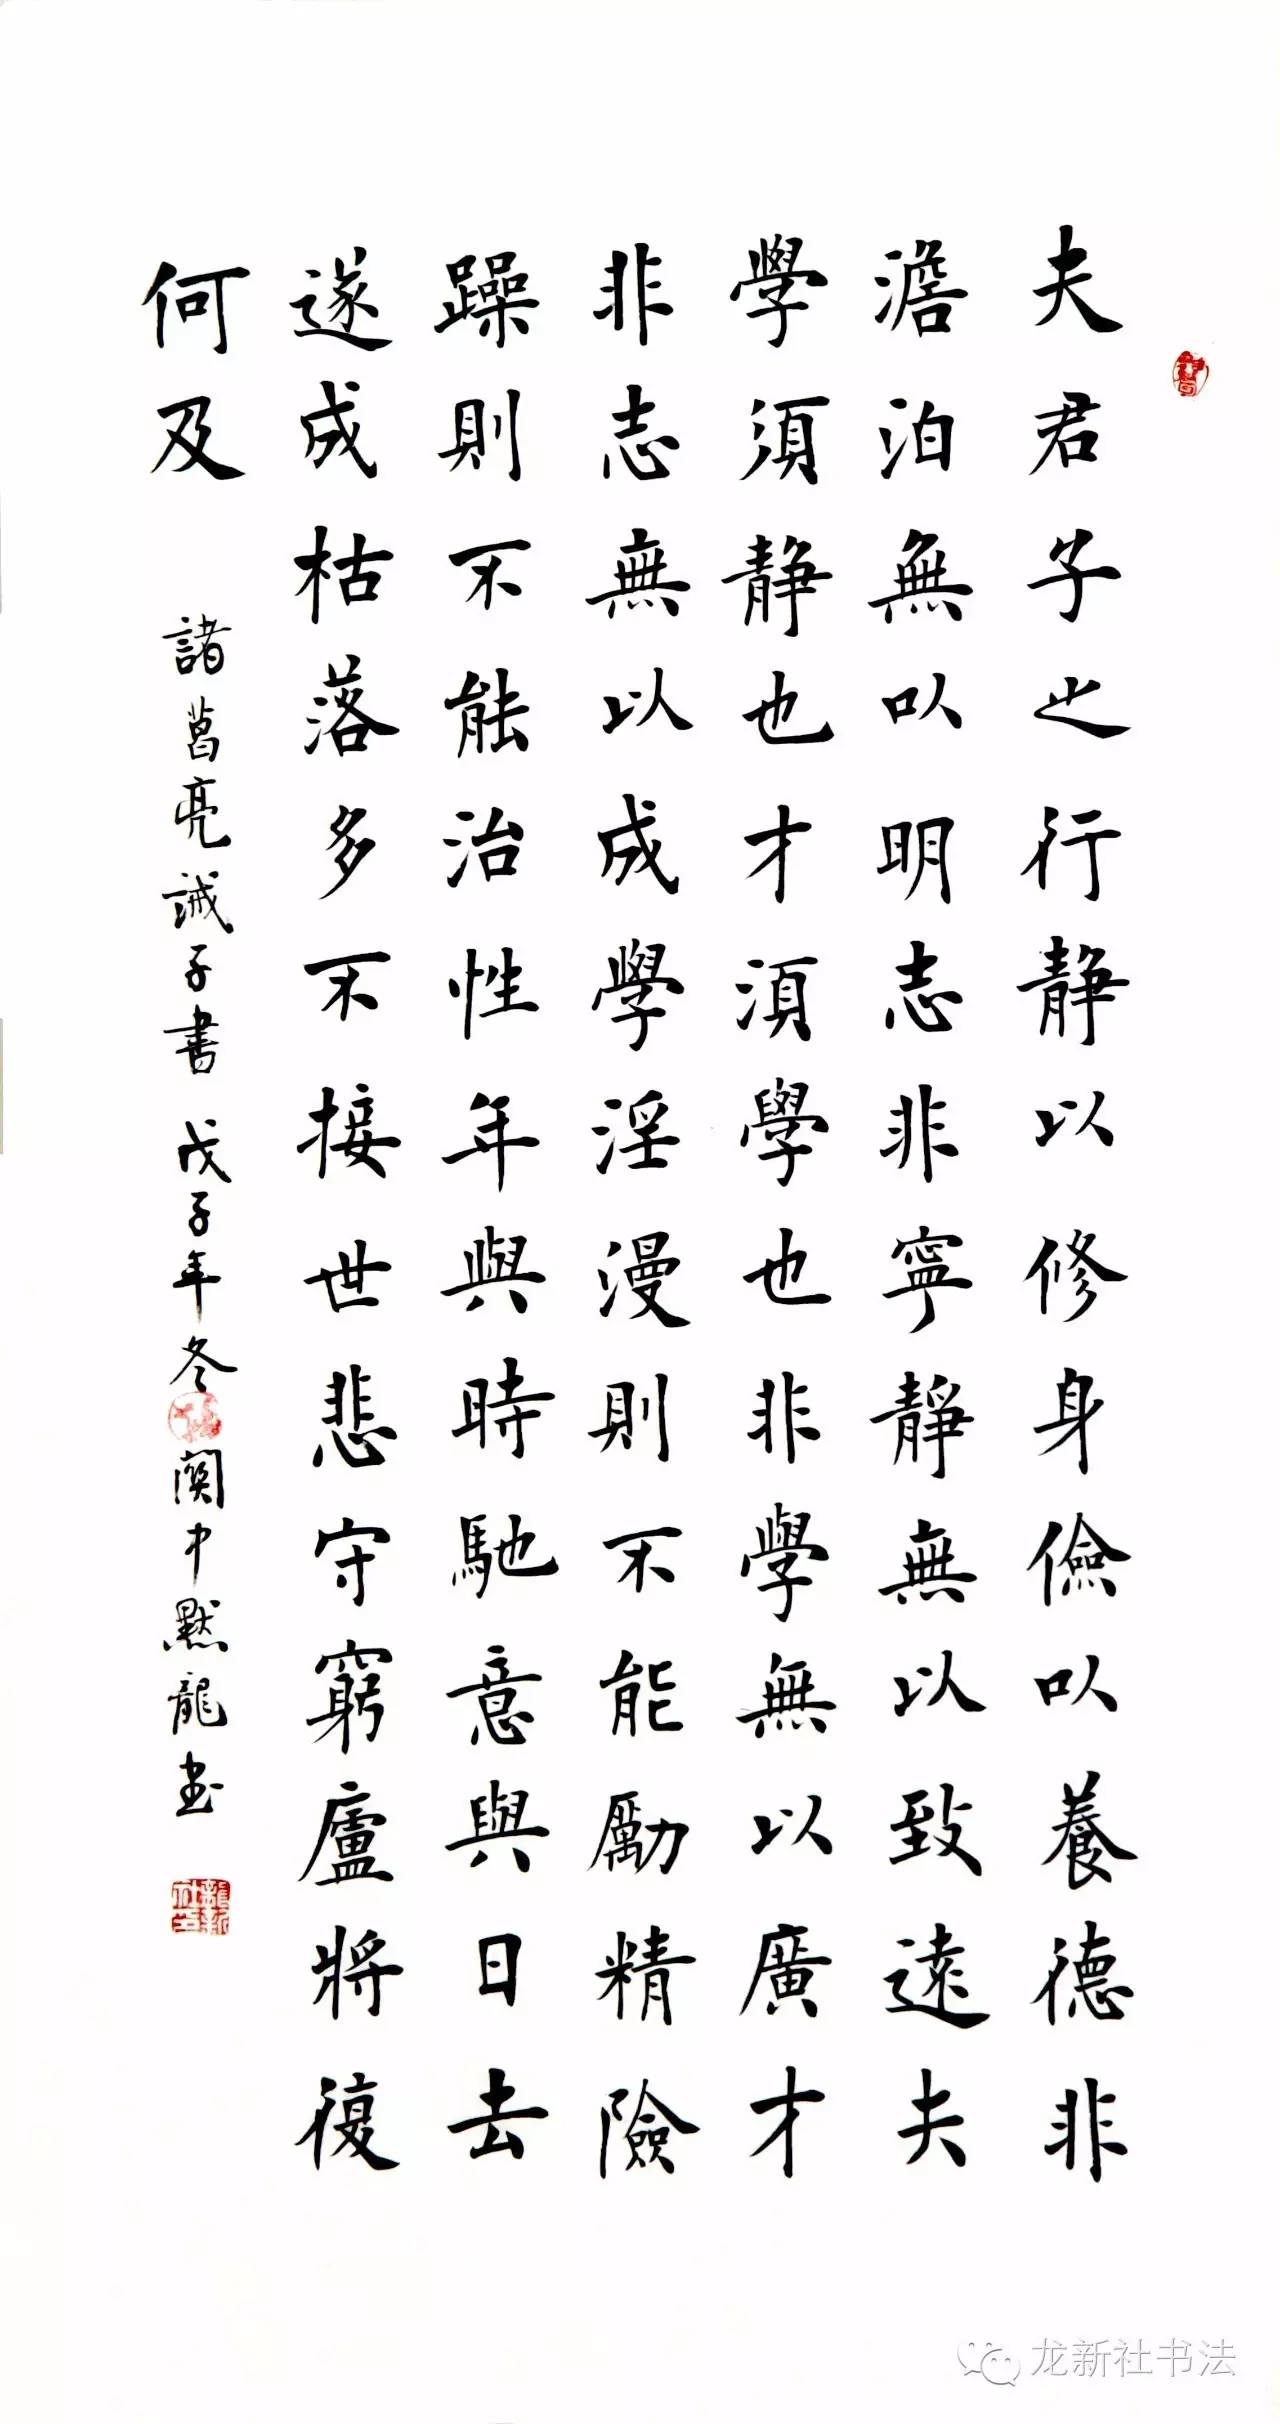 夫君子之行靜以修身儉以養德非
澹泊無以明志非寧靜無以致遠夫
學須静也才須學也非學無以廣才
非志無以成學淫漫則不能勵精險
躁則不能治性年與時馳意與日去
遂成枯落多不接世悲守窮廬將復
何及
諸葛亮誡子書 戊子年冬 関中默龍书
龍新社印
龙新社书法